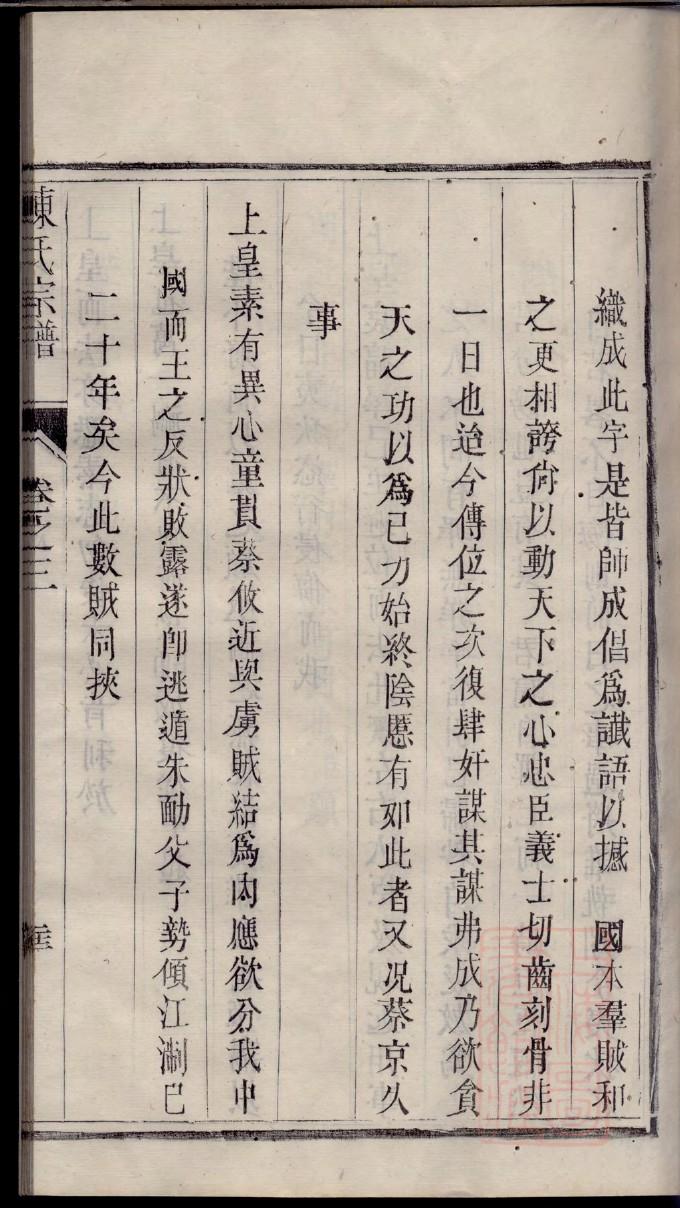 織成此字是皆師成倡爲讖語以撼　國本羣賊和
之更相誇尙以動天下之心忠臣義士切齒刻骨非
一日也迨今傳位之次復肆奸謀其謀弗成乃欲貪
天之功以爲己力始終陰慝有如此者又况蔡京久
事
上皇素有異心童貫蔡攸近與虜賊結爲內應欲分我中
國而王之反狀敗露遂卽逃遁朱勔父子勢傾江淛已
二十年矣今此數賊同挾
陳氏宗譜　卷之三